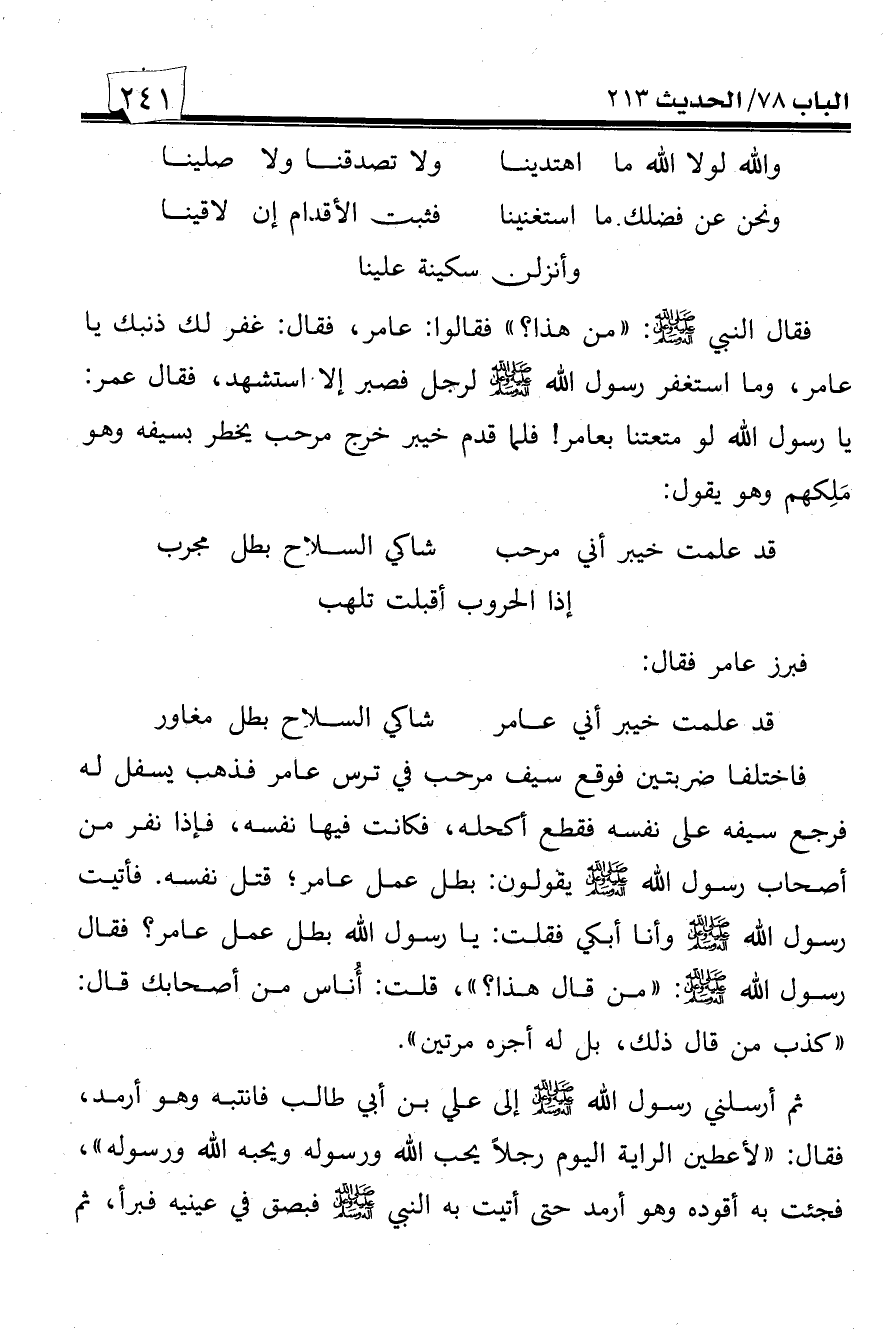 الباب ٧٨/ الحديث ٢١٣
٢٤١
والله لولا الله ما اهتدينـا ولا تصدقنـا ولا صلينـا
ونحن عن فضلك ما استغنينا فثبت الأقدام إن لاقينـا
وأنزلن سكينة علينا
فقال النبي ﷺ: «من هذا؟» فقالوا: عامر، فقال: غفر لك ذنبك يا
عامر، وما استغفر رسول الله ﷺ لرجل فصبر إلا استشهد، فقال عمر:
يا رسول الله لو متعتنا بعامر! فلما قدم خيبر خرج مرحب يخطر بسيفه وهو
مَلِكهم وهو يقول:
قد علمت خيبر أني مرحب شاكي السـلاح بطل مجرب
إذا الحروب أقبلت تلهب
فبرز عامر فقال:
قد علمت خيبر أني عـامر شاكي السـلاح بطل مغاور
فاختلفا ضربتين فوقع سيف مرحب في ترس عامر فذهب يسفل له
فرجع سيفه على نفسه فقطع أكحله، فكانت فيها نفسه، فإذا نفر من
أصحاب رسول الله ﷺ يقولون: بطل عمل عامر؛ قتل نفسه. فأتيت
رسول الله ﷺ وأنا أبكي فقلت: يا رسول الله بطل عمل عامر؟ فقال
رسول الله ﷺ: «من قال هذا؟»، قلت: أُناس من أصحابك قال:
«كذب من قال ذلك، بل له أجره مرتين».
ثم أرسلني رسول الله ﷺ إلى علي بن أبي طالب فانتبه وهو أرمد،
فقال: «لأعطين الراية اليوم رجلاً يحب الله ورسوله ويحبه الله ورسوله»،
فجئت به أقوده وهو أرمد حتى أتيت به النبي ﷺ فبصق في عينيه فبرأ، ثم